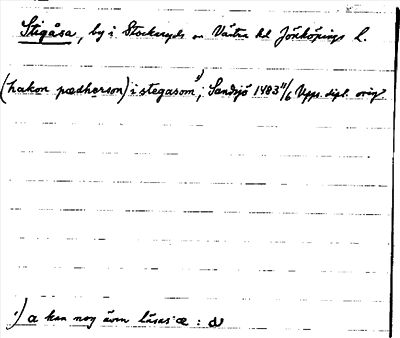 Stigåsa, by i Stockaryds sn Västra hd Jönköpings l.
(hakon pædherson) i stegasom¹⁾; Sandsjö 1483 11/6 Upps. dipl. orig.
¹⁾ a kan nog även läsas æ :